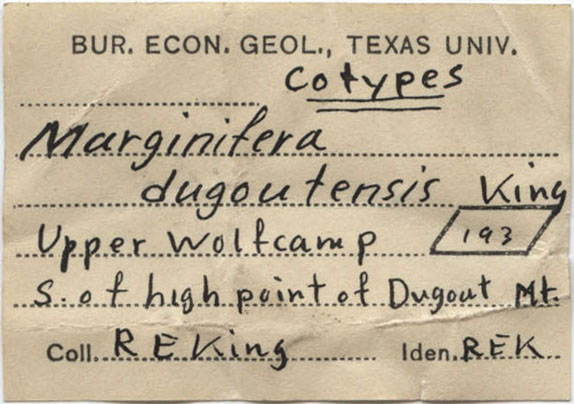 BUR. ECON. GEOL., TEXAS UNIV.
Cotypes
Marginifera
dugoutensis King
Upper Wolfcamp 193
S. of high point of Dugout Mt.
Coll. R E King Iden. REK